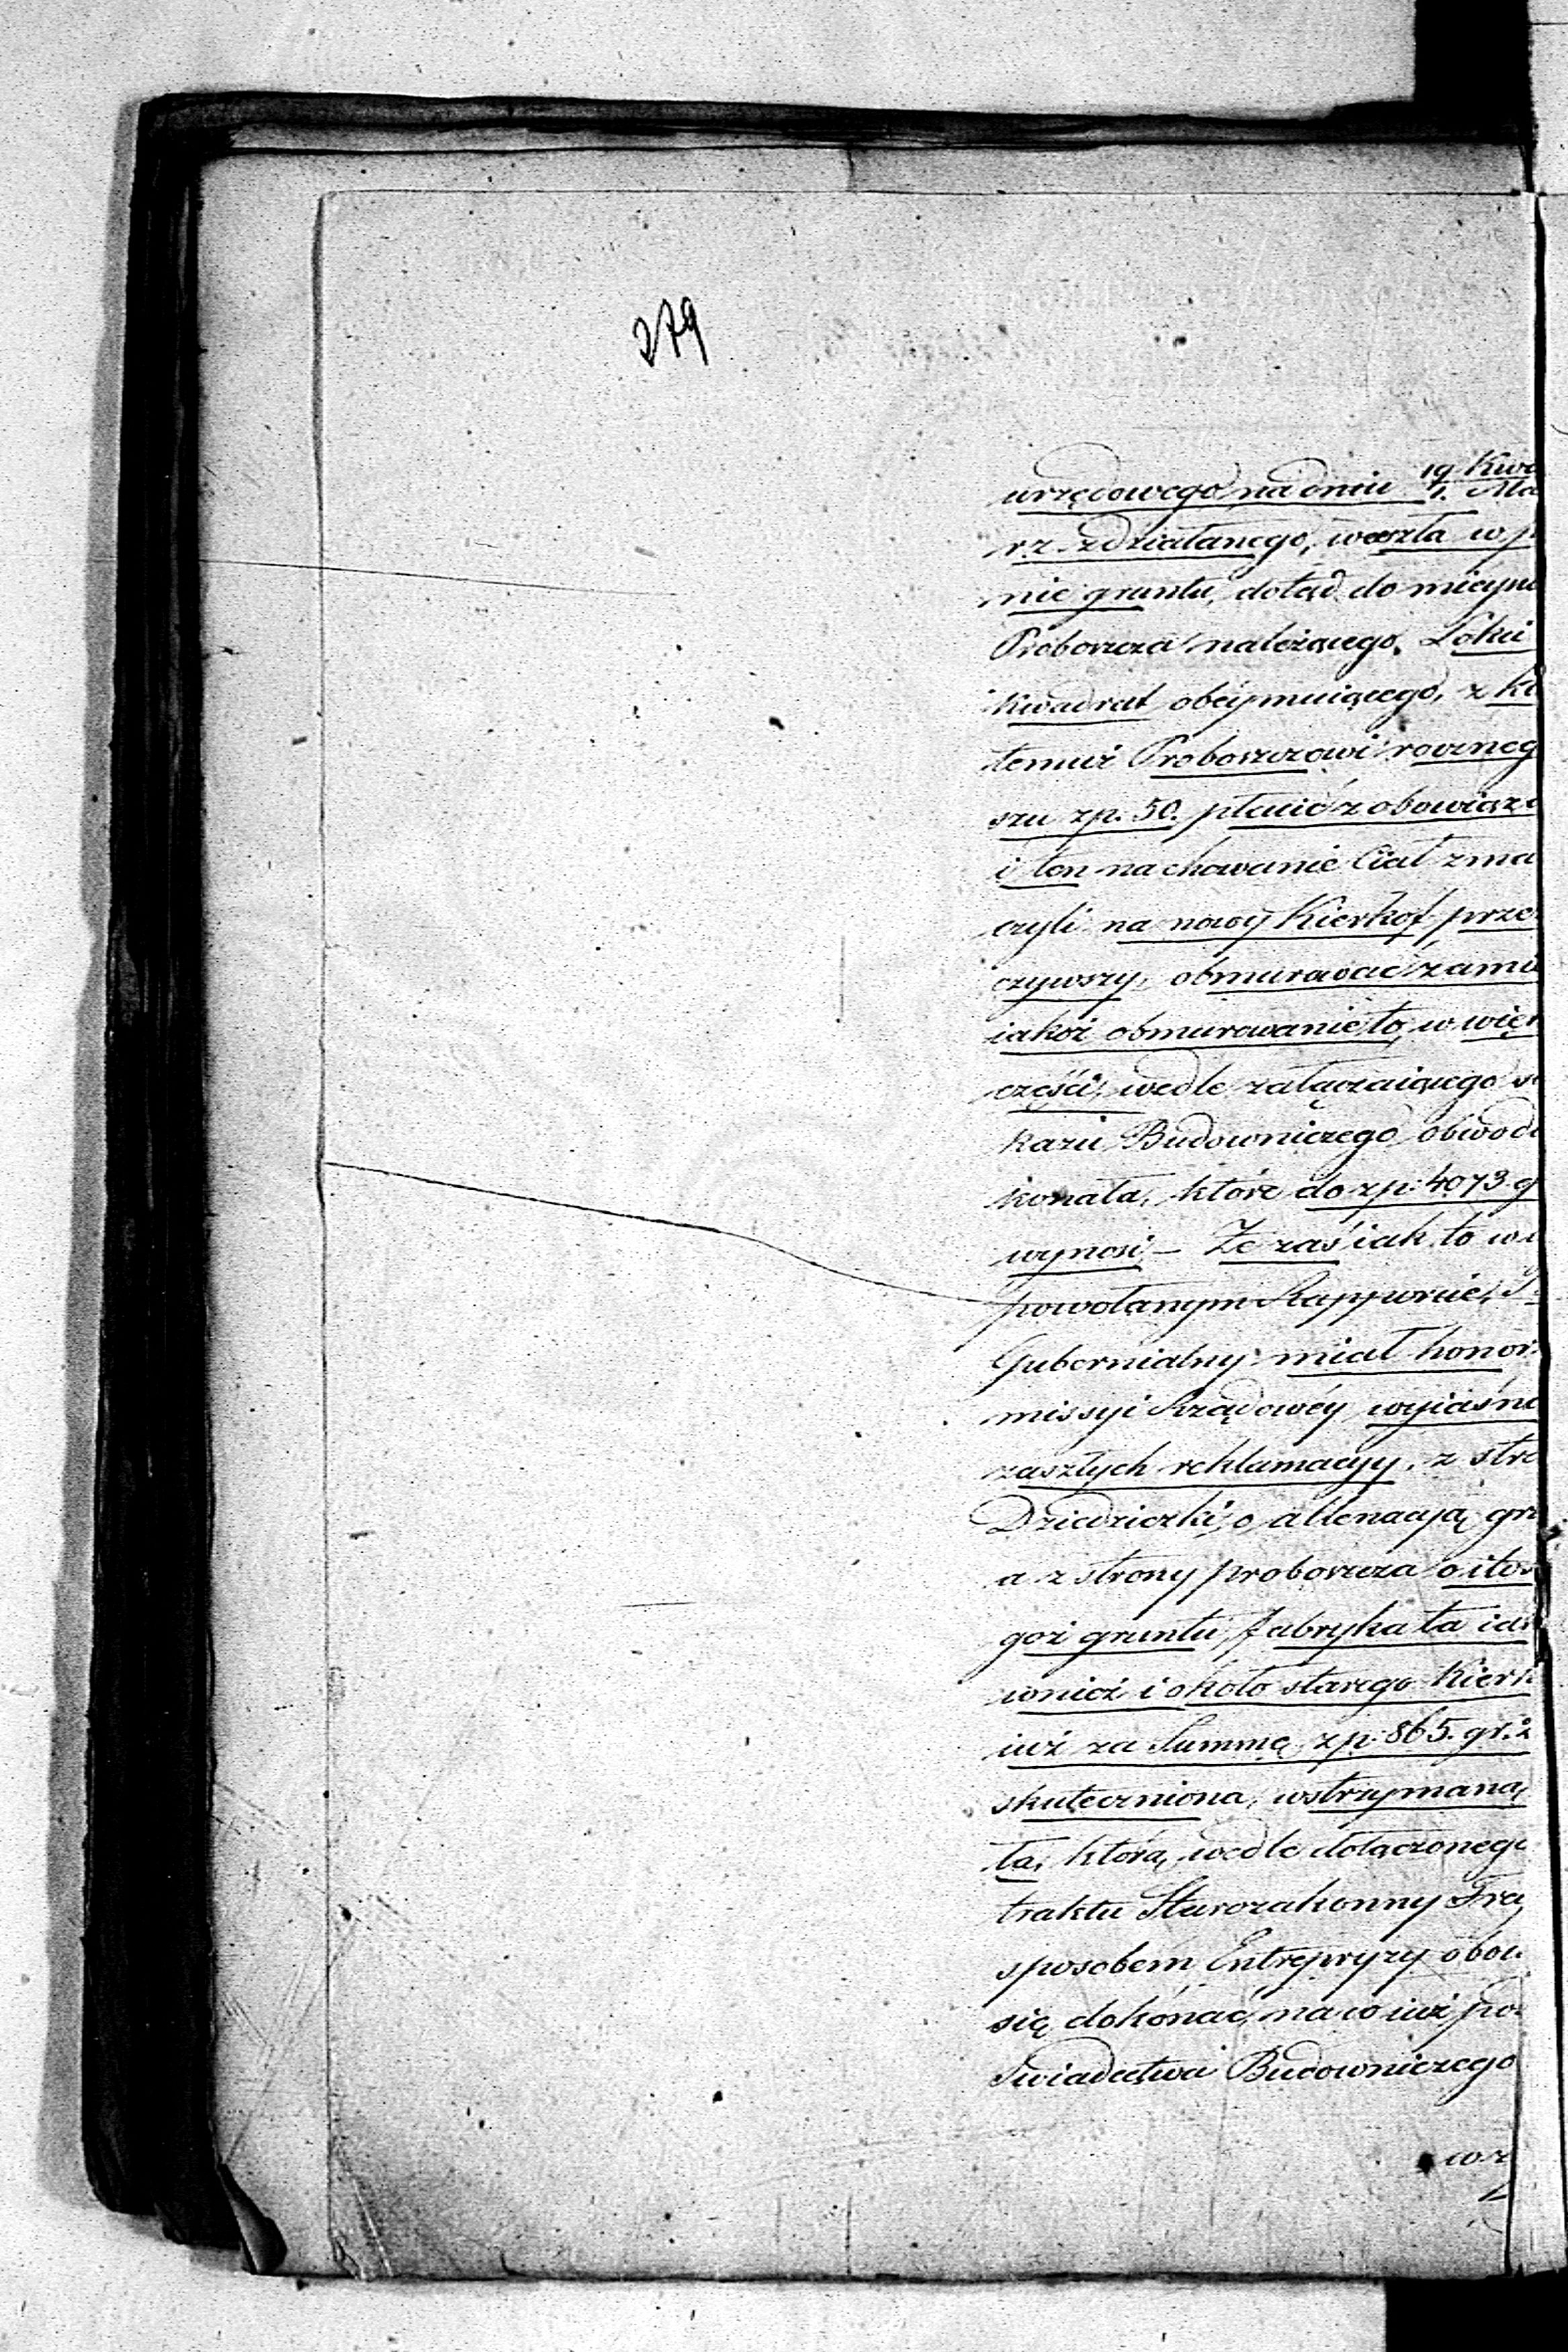 279
urzędowego na dniu 19 Kwi
1. Ma
rz. zdziałanego, weszła w p
nie gruntu, dotąd do mieysc
Proboszcza należącego, Łokci
kwadrat obeymuiącego, z kt
temuż Proboszczowi roczneg
szu zp. 50. płacić zobowiąza
i ten na chowanie Ciał zma
czyli na nowy Kierkof prze
czywszy, obmurować zamie
iakoż obmurowanie to, w więk
części, wedle załączaiącego s
kazu Budowniczego obwodu
konała, które do zp: 4073 g
wynosi – Że zaś iak to w
powołanym Rapporcie,
Gubernialny miał honor
missyi Rządowéy wyiaśni
zaszłych reklamacyy, z stro
Dziedziczki, o allenacyą gr
a z strony proboszcza o iloś
goż gruntu, fabryka ta ia
wnież i około starego Kierk
iuż za Summę zp: 865. gr. 2
skuteczniona, wstrzymaną
ła, którą, wedle dołączonego
traktu Starozakonny Fra
sposobem Entrepryzy obow
się dokonać, na co iuż po
Swiadectwa Budowniczego
w z